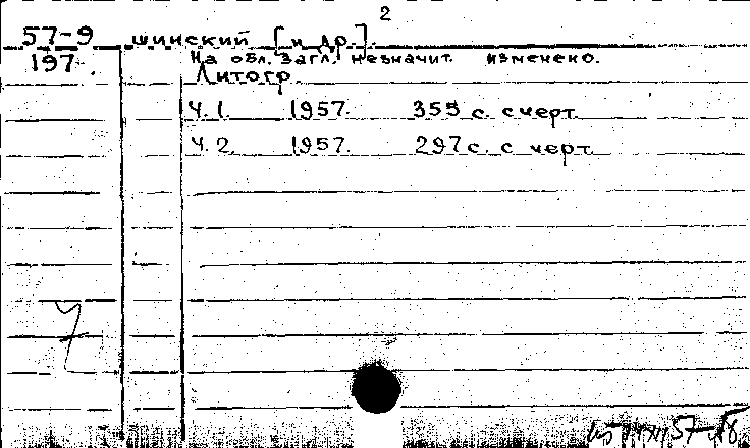 2
57-9 шинский [и др.]
197. На обл. загл. незначит. изменено.
Литогр.
Ч. 1. 1957. 355 с. с черт.
Ч. 2. 1957. 297 с. с черт.